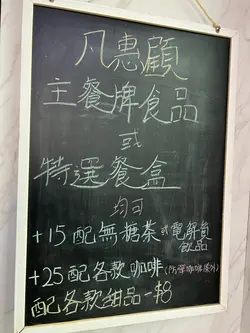 凡惠顧
主餐牌食品
或
特選餐盒
均可
+15配無糖茶或電解質飲品
+25配各款咖啡(除外)
配各款甜品-$8